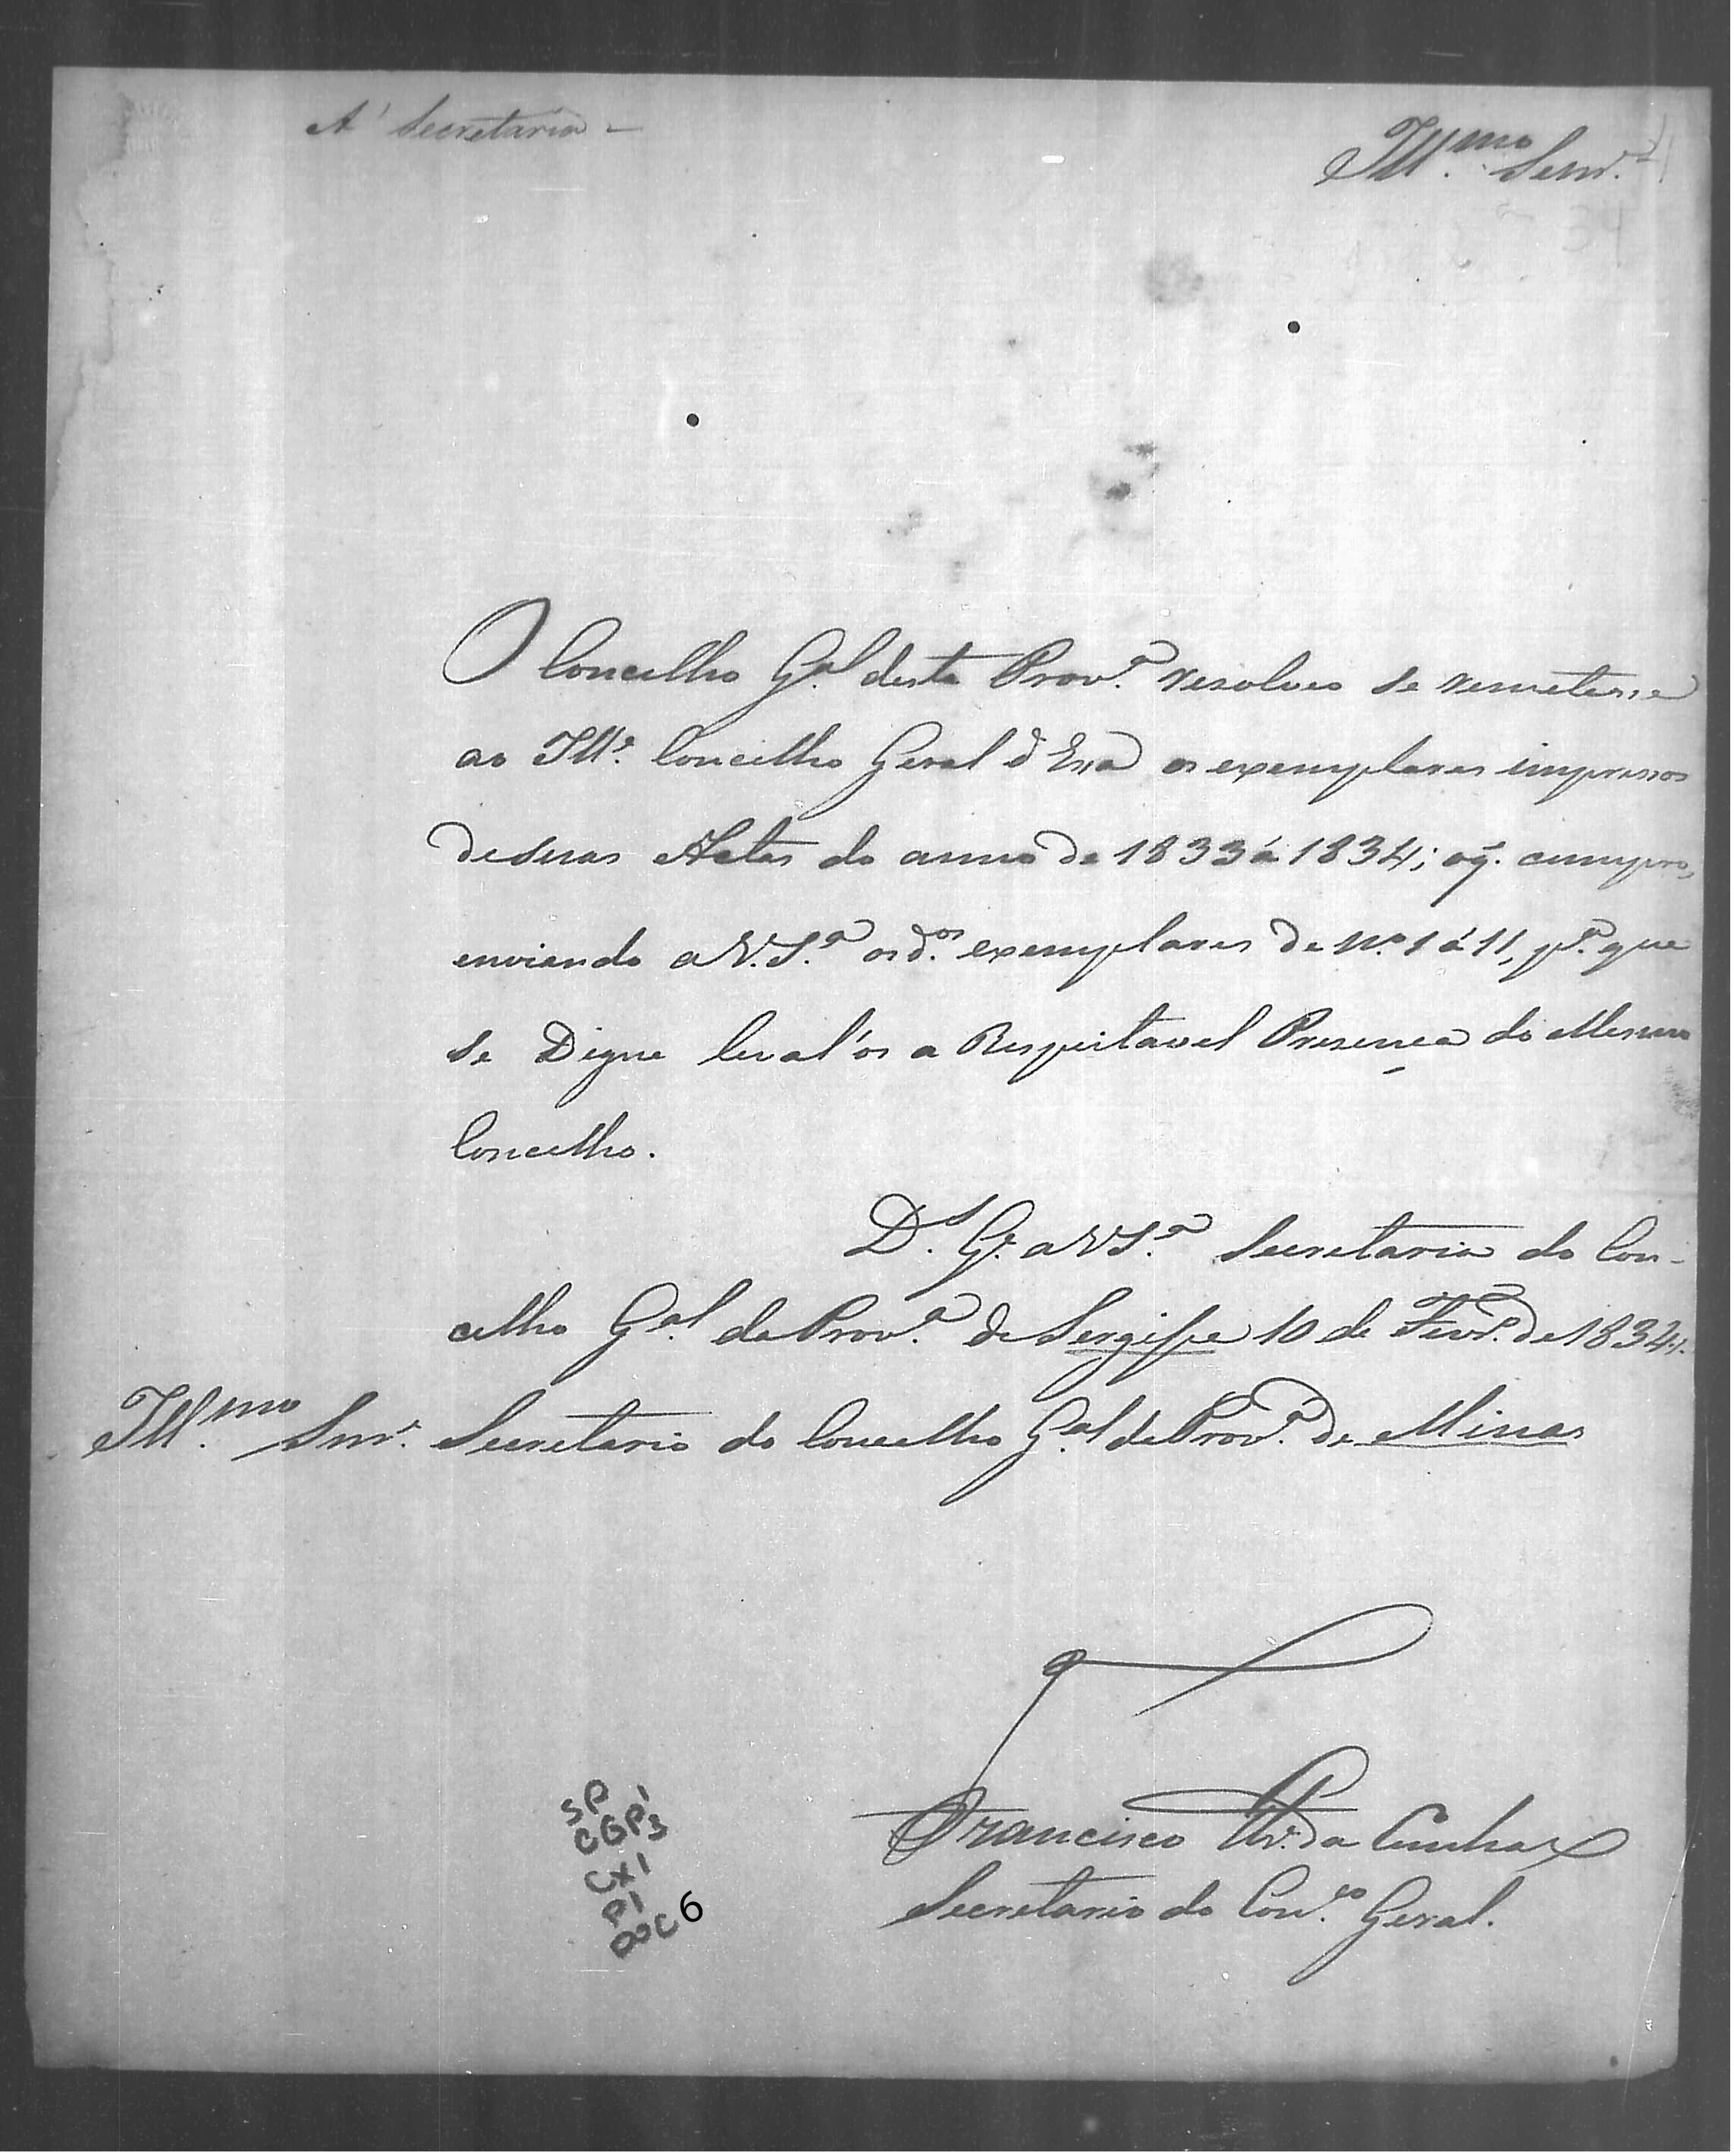 A' Secretaria -
Ill.mo Senr.
34
O Concelho G.al desta Prov.a resolveo se remetesse
ao Ill.e Concelho Geral d'Essa os exemplares impressos
de suas Actas do anno de 1833 á 1834; o q. cumpro,
enviando a V.S.a os d.os exemplares de N.o 1 á 11, p.a que
se Digne leval'os a Respeitavel Presença do Mesmo
Concelho.
D.s G.e a V S.a Secretaria do Con-
celho G.al da Prov.a de Sergipe 10 de Fevr.o de 1834.
Ill.mo Snr. Secretario do Concelho G.al da Prov.a de Minas
Francisco da Cunha
Secretario do Con.co Geral.
SP
CGP1 3
CX1
P1
DOC 6